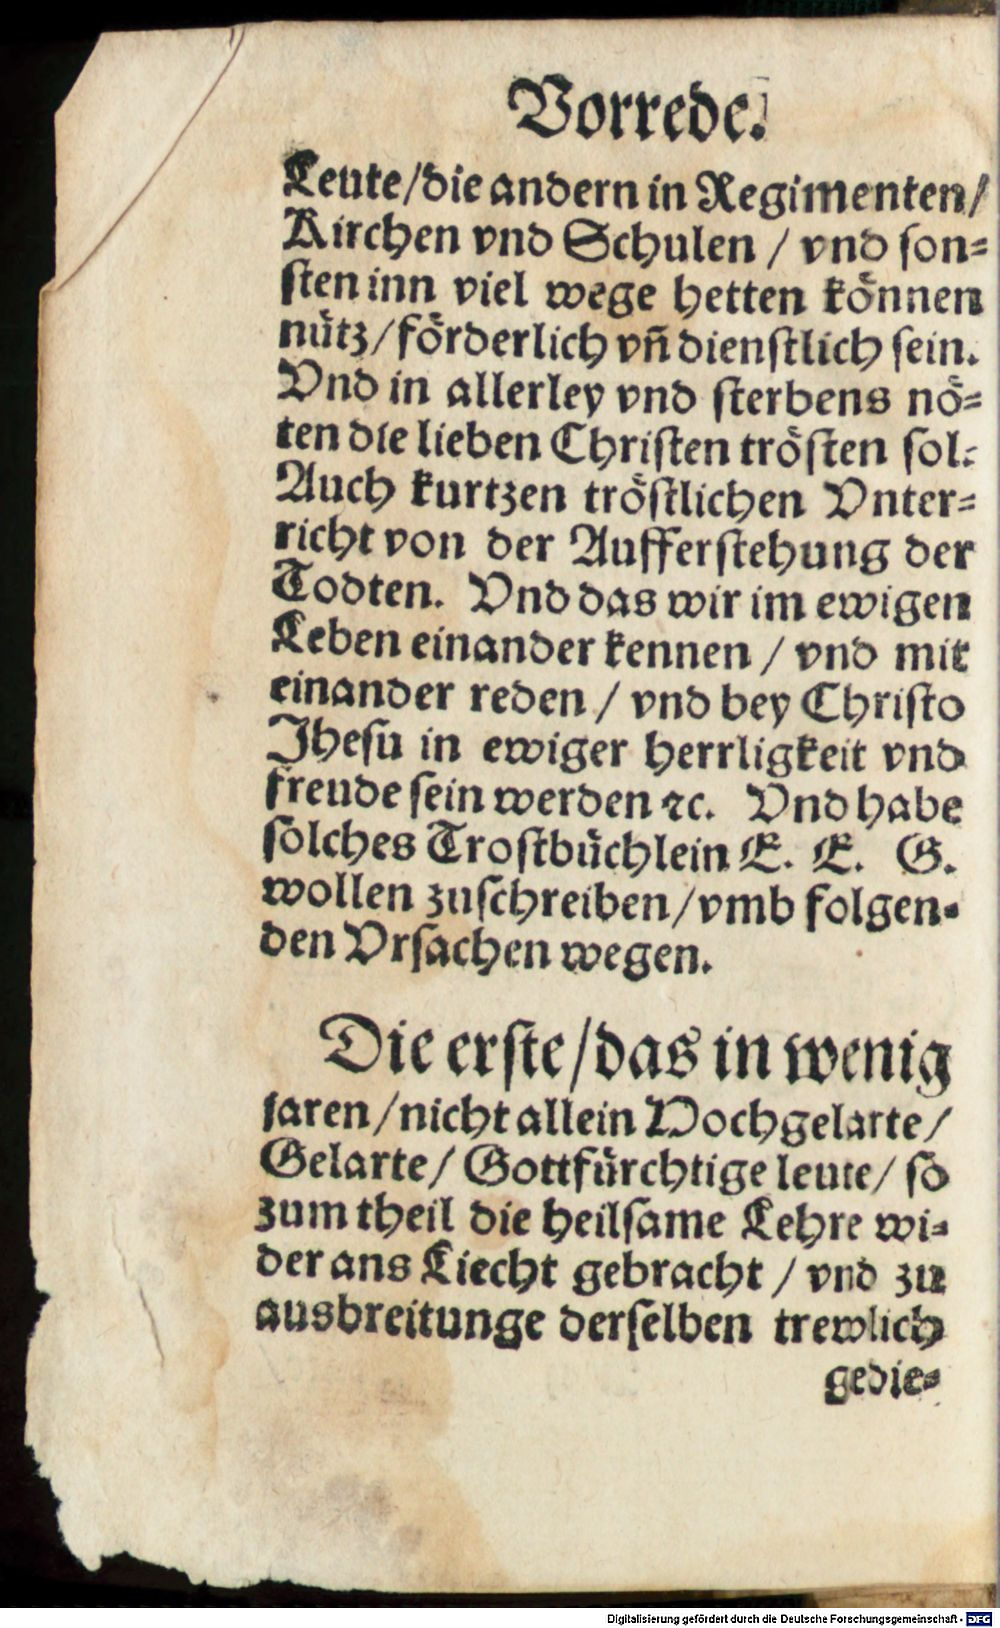 Vorrede.
Leute/die andern in Regimenten/
Kirchen vnd Schulen / vnd son⸗
sten inn viel wege hetten koͤnnen
nuͤtz/foͤrderlich vñ dienstlich sein.
Vnd in allerley vnd sterbens noͤ⸗
ten die lieben Christen troͤsten sol.
Auch kurtzen troͤstlichen Vnter⸗
richt von der Aufferstehung der
Todten. Vnd das wir im ewigen
Leben einander kennen / vnd mit
einander reden / vnd bey Christo
Jhesu in ewiger herrligkeit vnd
freude sein werden ꝛc. Vnd habe
solches Trostbuͤchlein E. E. G.
wollen zuschreiben/vmb folgen⸗
den Vrsachen wegen.
Die erste/das in wenig
jaren/nicht allein Hochgelarte/
Gelarte/ Gottfuͤrchtige leute/ so
zum theil die heilsame Lehre wi⸗
der ans Liecht gebracht / vnd zu
ausbreitunge derselben trewlich
gedie⸗
Digitalisierung gefördert durch die Deutsche Forschungsgemeinschaft - DFG